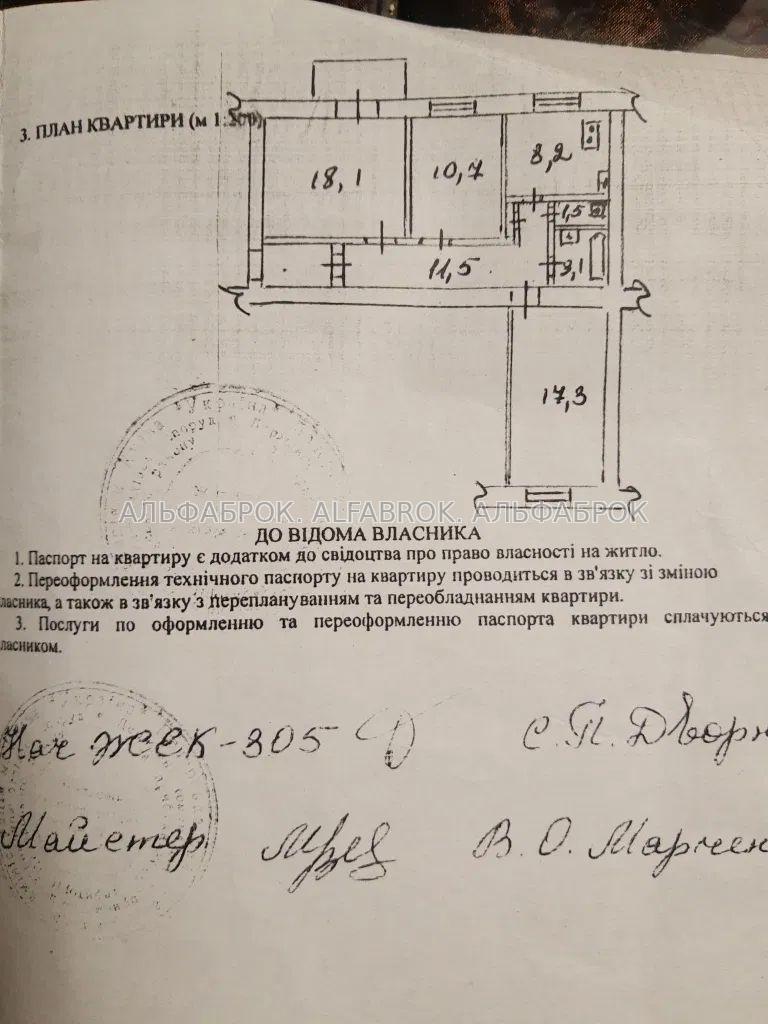 3. ПЛАН КВАРТИРИ (м 1:200)
18,1
10,7
8,2
1,5
11,5
3,1
17,3
Україна
АЛЬФАБРОК. ALFABROK. АЛЬФАБРОК
ДО ВІДОМА ВЛАСНИКА
1. Паспорт на квартиру є додатком до свідоцтва про право власності на житло.
2. Переоформлення технічного паспорту на квартиру проводиться в зв'язку зі зміною
ласника, а також в зв'язку з переплануванням та переобладнанням квартири.
3. Послуги по оформленню та переоформленню паспорта квартири сплачуються
ласником.
Нач ЖЕК-305 С.П. Дворн
Майстер В.О. Марчен